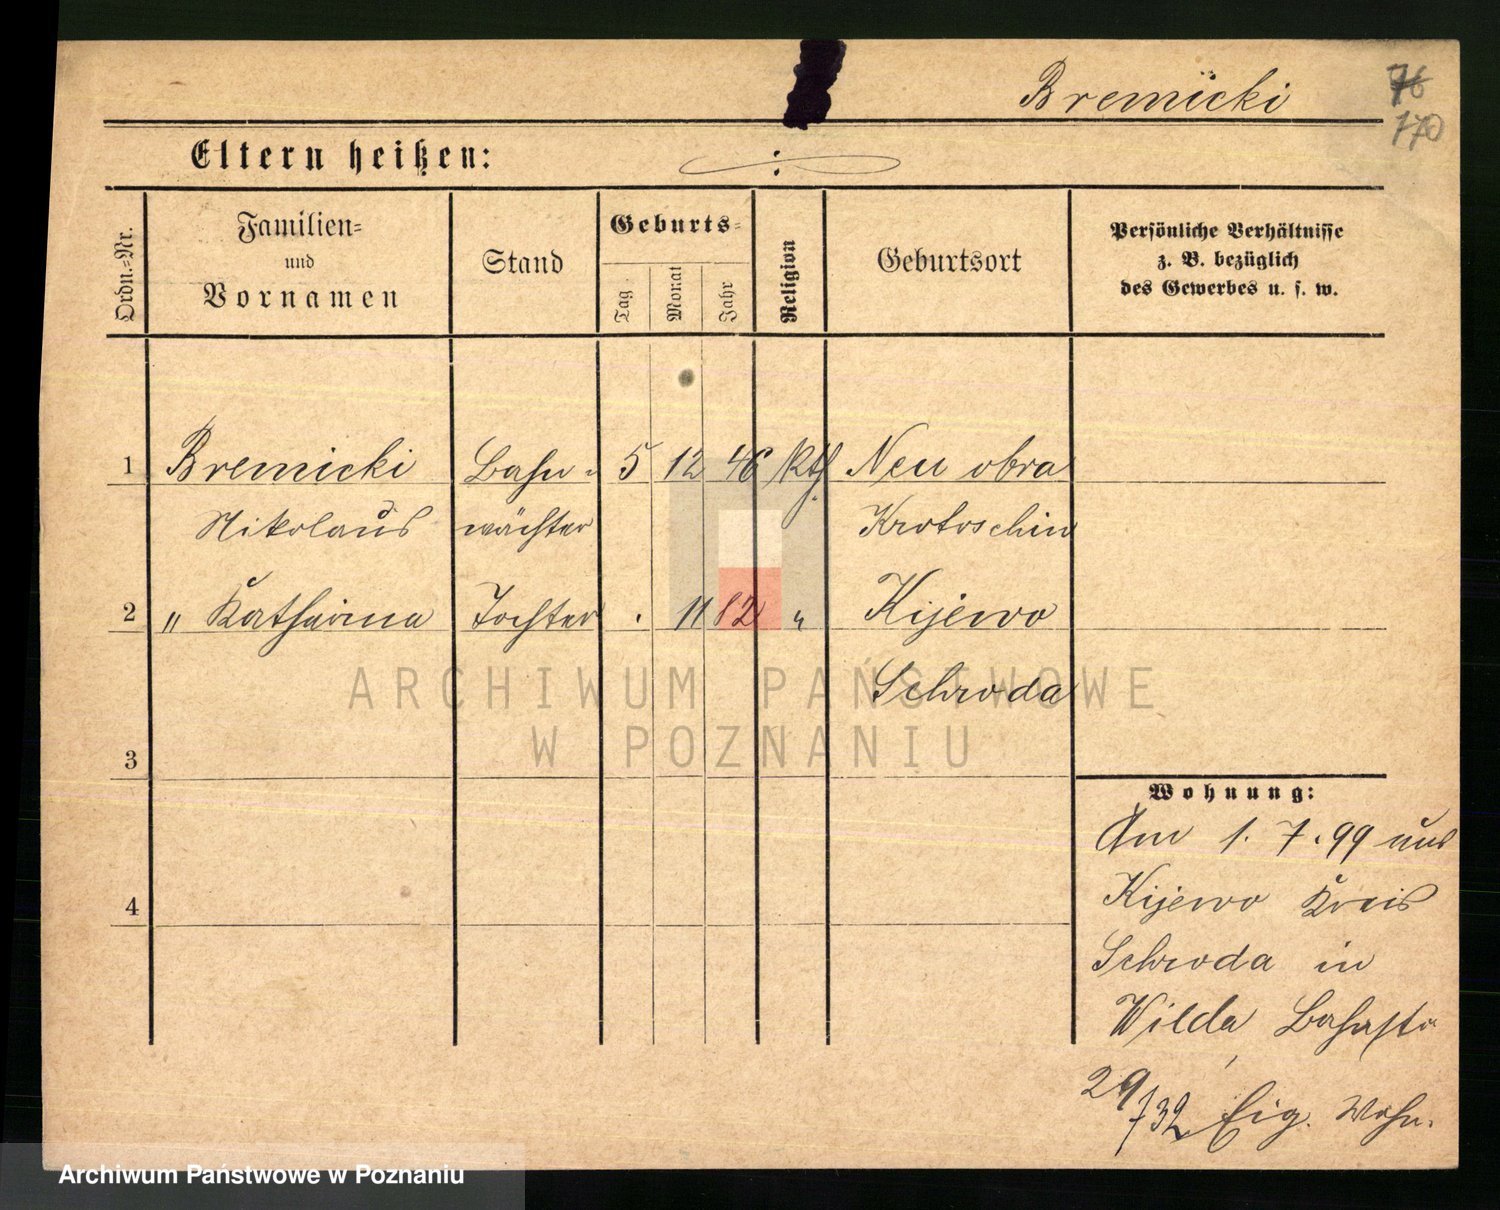 Bremicki
76
170
Eltern heißen:
Ordn.-Nr.
Familien-
und
Vornamen
Stand
Geburts-
Tag
Monat
Jahr
Religion
Geburtsort
Persönliche Verhältnisse
z. B. bezüglich
des Gewerbes u. s. w.
1 Bremicki Bahn- 5 12 46 kth Neu obra
Nikolaus wächter Krotoschin
2 " Katharina Tochter . 11 82 " Kijewo
Schroda
ARCHIWUM PAŃSTWOWE
W POZNANIU
3
4
Wohnung:
Am 1. 7. 99 aus
Kijewo Kreis
Schroda in
Wilda Bahnstr
29/732 Eig. Wohn.
Archiwum Państwowe w Poznaniu